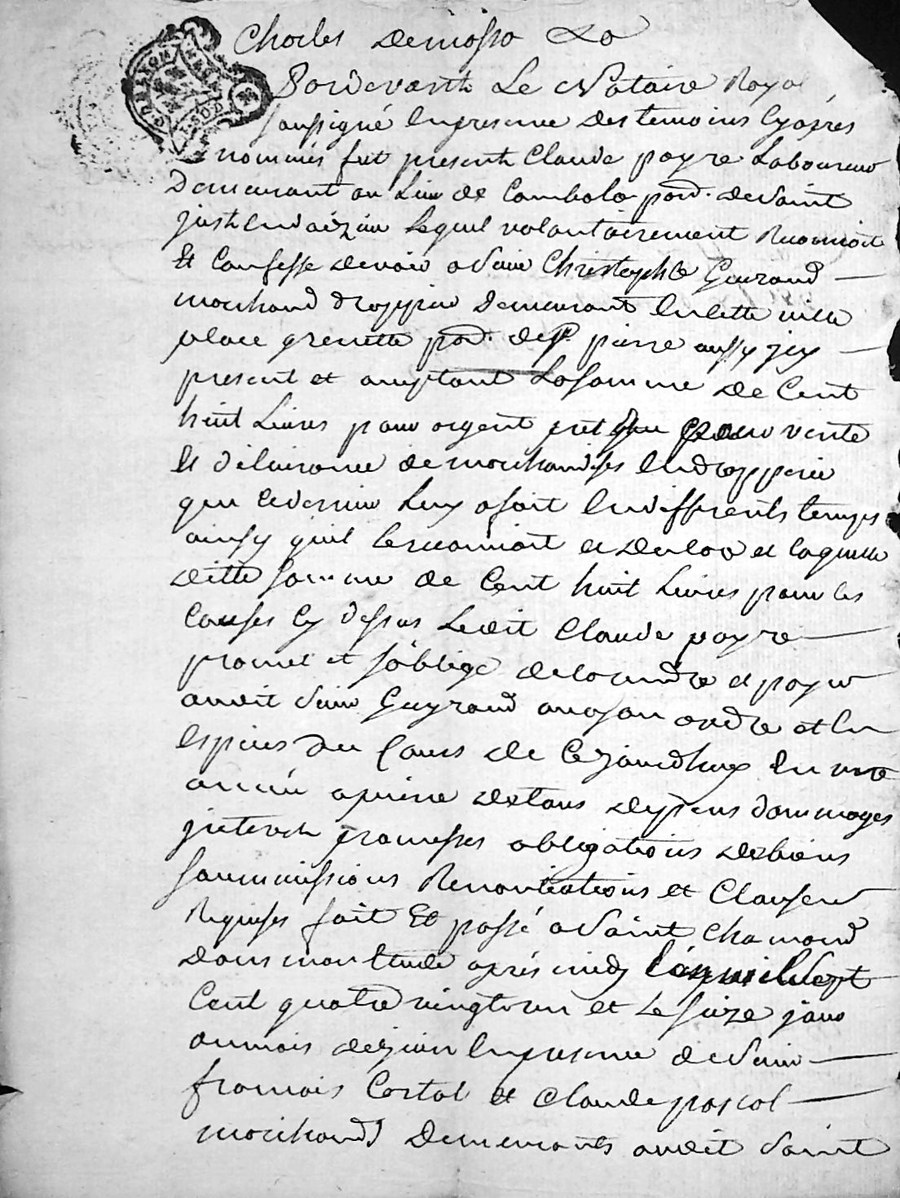 Charles
Pardevant Le Notaire Royal
soussigné en presence des temoins cy après
nommés fut present Claude payre Laboureur
Demeurant au Lieu de Combalo par. de Saint
just en doizieu Lequel volontairement Reconnoit
Et Confesse devoir a Sieur Christophle Guirand
marchand drappier Demeurant en cette ville
place grenette par. de St. pierre aussy jcy
present et acceptant La somme de Cent
huit Livres pour argent pret ou pour vente
Et délivrance de marchandises En drapperie
que ce dernier Luy a fait En differents temps
ainsy quil Le reconnoit et declare et laquelle
ditte somme de Cent huit Livres pour les
Causes Cy dessus Le dit Claude payre
promet et soblige de la rendre et payer
audit Sieur Guyrand ou a son ordre et En
Espices du Cours de Ce jourdhuy En une
année a peine de tous depens dommages
jnterest promesses obligations de biens
soummissions Renontiations et Clauses
Requises fait Et passé a Saint Chamond
Dans mon Etude après midy L'an mil sept
Cent quatre vingt un et Le seize jour
du mois de juin En presence de Sieur
francois Costal et Claude pascal
marchands Demeurants audit Saint